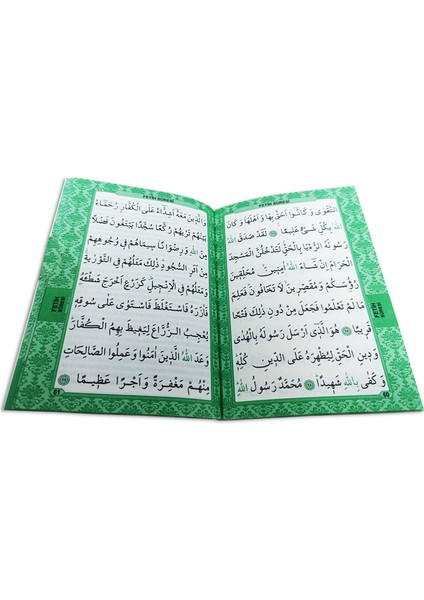 FETİH SURESİ
التَّقْوٰى وَكَانُٓوا اَحَقَّ بِهَا وَاَهْلَهَا وَكَانَ
اللّٰهُ بِكُلِّ شَيْءٍ عَلِيمًا ﴿٢٦﴾ لَقَدْ صَدَقَ اللّٰهُ
رَسُولَهُ الرُّءْيَا بِالْحَقِّ لَتَدْخُلُنَّ الْمَسْجِدَ
الْحَرَامَ اِنْ شَٓاءَ اللّٰهُ اٰمِنِينَ مُحَلِّقِينَ
رُؤُسَكُمْ وَمُقَصِّرِينَ لَا تَخَافُونَ فَعَلِمَ
مَا لَمْ تَعْلَمُوا فَجَعَلَ مِنْ دُونِ ذٰلِكَ فَتْحًا
قَرِيبًا ﴿٢٧﴾ هُوَ الَّذِٓي اَرْسَلَ رَسُولَهُ بِالْهُدٰى
وَدِينِ الْحَقِّ لِيُظْهِرَهُ عَلَى الدِّينِ كُلِّهِ
وَكَفٰى بِاللّٰهِ شَهِيدًا ﴿٢٨﴾ مُحَمَّدٌ رَسُولُ اللّٰهِ
FETİH
SURESİ
60
FETİH SURESİ
وَالَّذِينَ مَعَهُٓ اَشِدَّٓاءُ عَلَى الْكُفَّارِ رُحَمَٓاءُ
بَيْنَهُمْ تَرٰيهُمْ رُكَّعًا سُجَّدًا يَبْتَغُونَ فَضْلًا
مِنَ اللّٰهِ وَرِضْوَانًا سِيمَاهُمْ فِي وُجُوهِهِمْ
مِنْ اَثَرِ السُّجُودِ ذٰلِكَ مَثَلُهُمْ فِي التَّوْرٰيةِ
وَمَثَلُهُمْ فِي الْاِنْجِيلِ كَزَرْعٍ اَخْرَجَ شَطْـَٔهُ
فَاٰزَرَهُ فَاسْتَغْلَظَ فَاسْتَوٰى عَلٰى سُوقِهِ
يُعْجِبُ الزُّرَّاعَ لِيَغِيظَ بِهِمُ الْكُفَّارَ
وَعَدَ اللّٰهُ الَّذِينَ اٰمَنُوا وَعَمِلُوا الصَّالِحَاتِ
مِنْهُمْ مَغْفِرَةً وَاَجْرًا عَظِيمًا ﴿٢٩﴾
FETİH
SURESİ
61